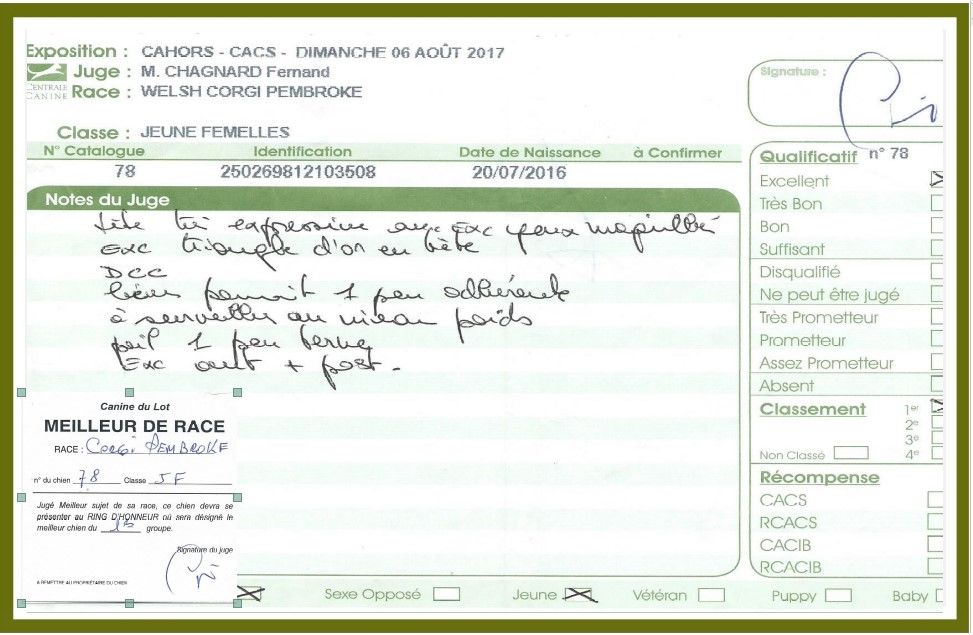 Exposition : CAHORS - CACS - DIMANCHE 06 AOÛT 2017
Juge : M. CHAGNARD Fernand
CENTRALE CANINE
Race : WELSH CORGI PEMBROKE
Classe : JEUNE FEMELLES
N° Catalogue Identification Date de Naissance à Confirmer
78 250269812103508 20/07/2016
Signature :
Notes du Juge
tête très expressive avec Exc yeux maquillé
Exc triangle d'or en tête
DCC
1 peu adhérente
à surveiller au niveau poids
poil 1 peu
Exc + post.
Qualificatif n° 78
Excellent
Très Bon
Bon
Suffisant
Disqualifié
Ne peut être jugé
Très Prometteur
Prometteur
Assez Prometteur
Absent
Classement 1er
2e
3e
Non Classé 4e
Récompense
CACS
RCACS
CACIB
RCACIB
Canine du Lot
MEILLEUR DE RACE
RACE : Corgi PEMBROKE
n° du chien 78 Classe JF
Jugé Meilleur sujet de sa race, ce chien devra se
présenter au RING D'HONNEUR où sera désigné le
meilleur chien du groupe.
Signature du juge
A REMETTRE AU PROPRIÉTAIRE DU CHIEN
Sexe Opposé Jeune Vétéran Puppy Baby